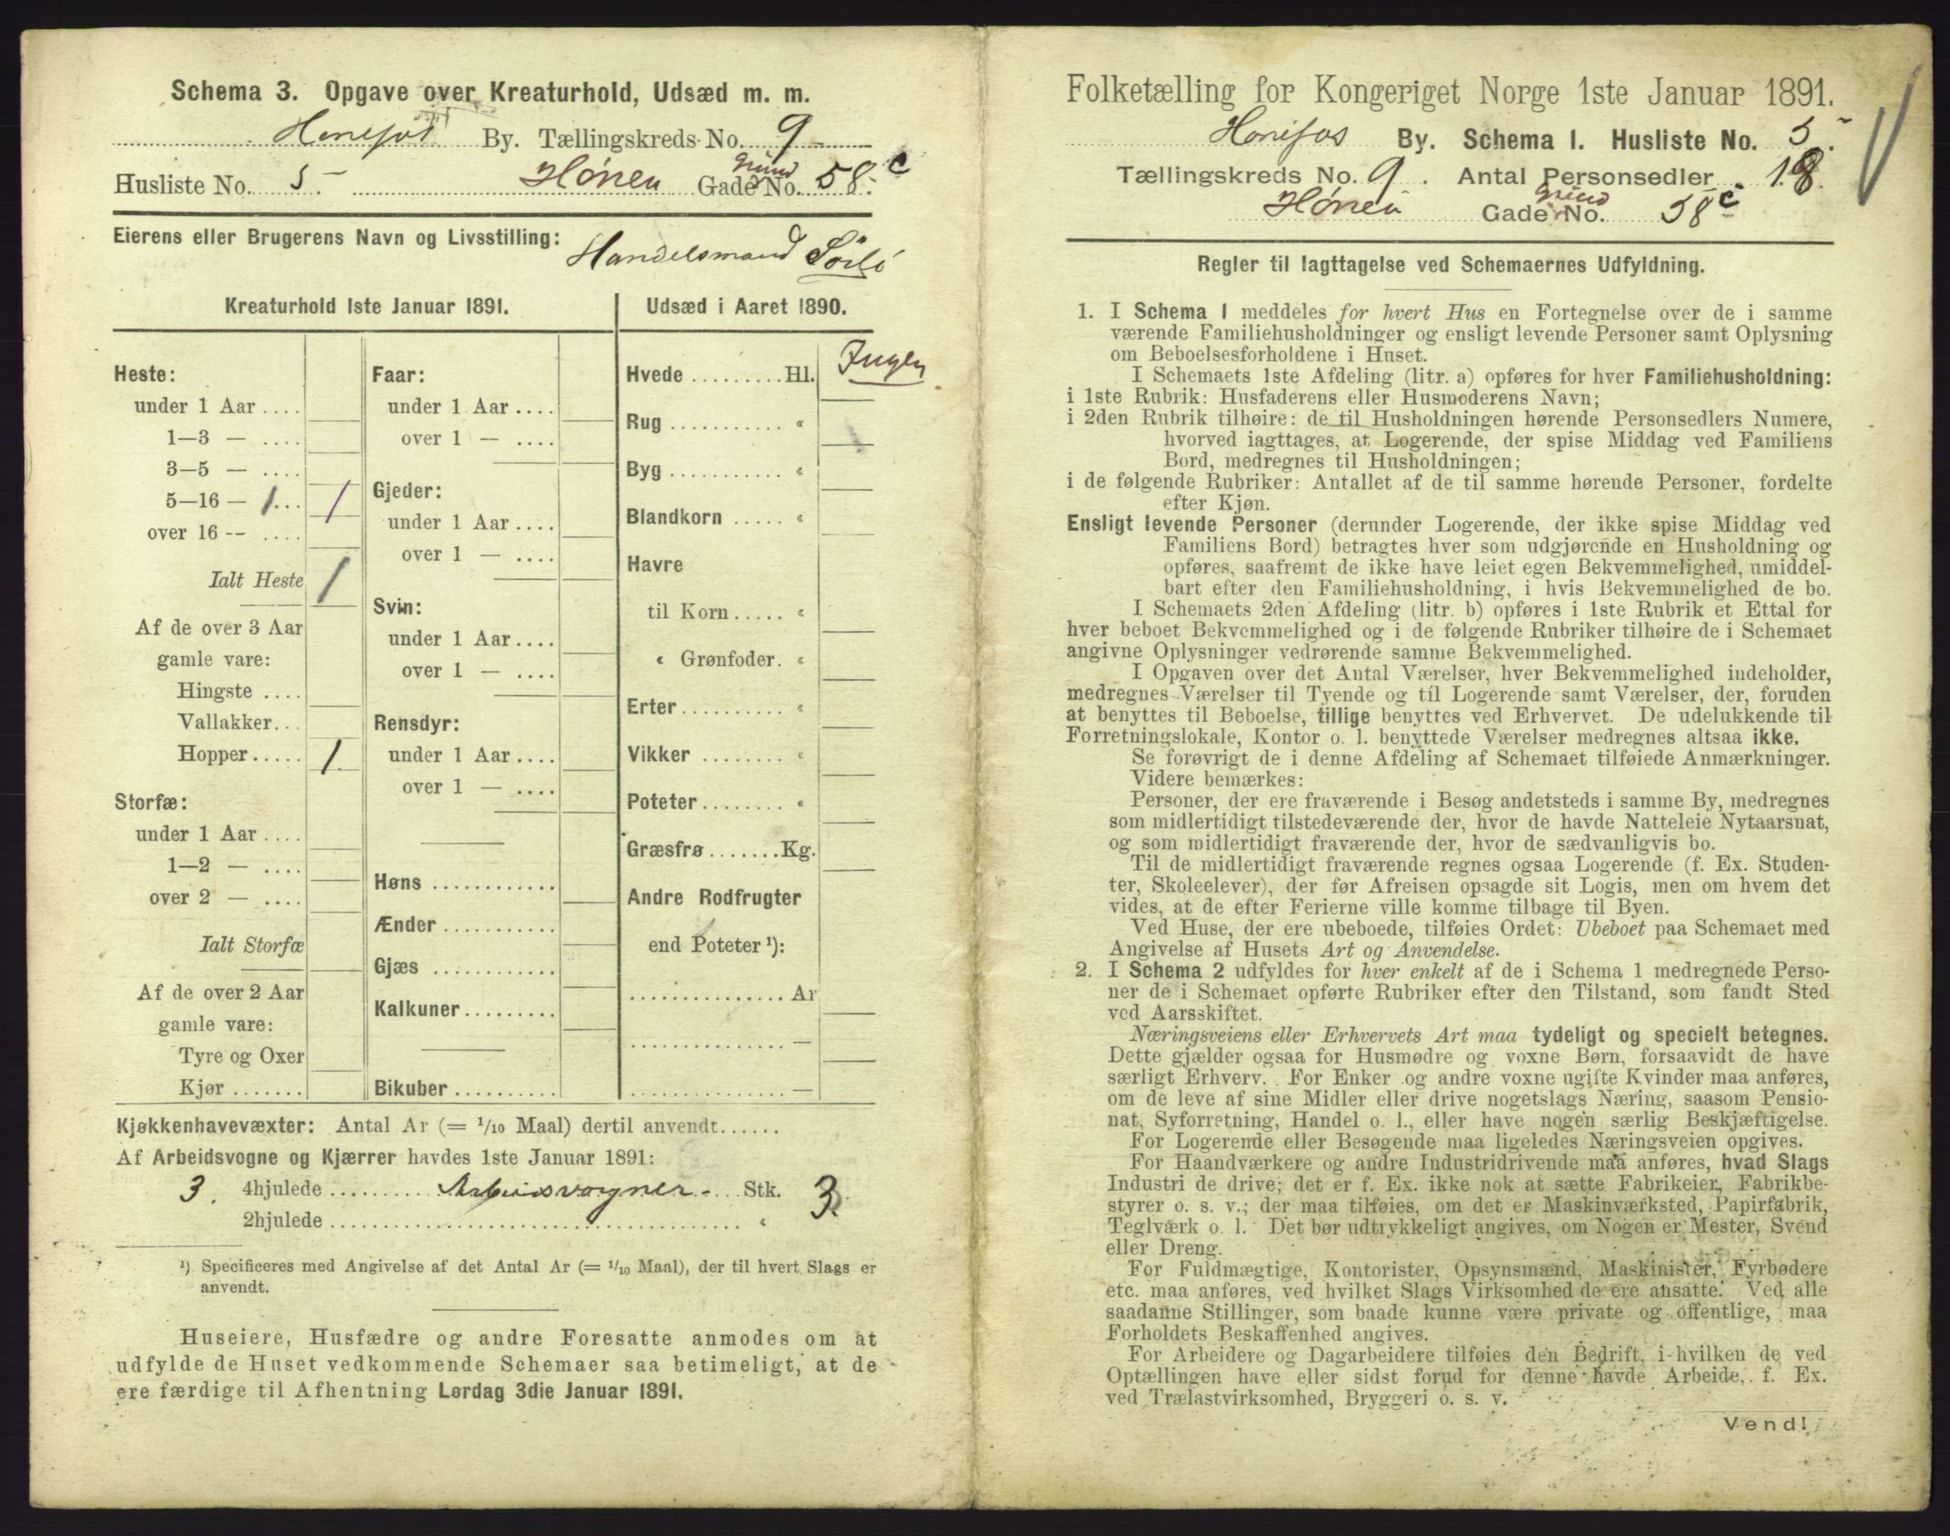 Schema 3. Opgave over Kreaturhold, Udsæd m. m.
Hønefos By. Tællingskreds No. 9
Husliste No. 5 Hønen Gade No. 58 c
Grund
Eierens eller Brugerens Navn og Livsstilling: Handelsmand Sörlö
Kreaturhold 1ste Januar 1891.
Heste:
under 1 Aar ....
1—3 — ....
3—5 — ....
5—16 — 1... 1
over 16 -- ....
Ialt Heste 1
Af de over 3 Aar
gamle vare:
Hingste ....
Vallakker...
Hopper..... 1
Storfæ:
under 1 Aar ....
1—2 — ....
over 2 — ....
Ialt Storfæ
Af de over 2 Aar
gamle vare:
Tyre og Oxer
Kjør .......
Faar:
under 1 Aar ....
over 1 — ....
Gjeder:
under 1 Aar ....
over 1 — ....
Svin:
under 1 Aar ....
over 1 — ....
Rensdyr:
under 1 Aar ....
over 1 — ....
Høns ............
Ænder ...........
Gjæs ............
Kalkuner.........
Bikuber ..........
Udsæd i Aaret 1890.
Hvede .........Hl. Ingen
Rug ........... «
Byg ........... «
Blandkorn ..... «
Havre
til Korn..... «
« Grønfoder. «
Erter.......... «
Vikker ........ «
Poteter........ «
Græsfrø .......Kg.
Andre Rodfrugter
end Poteter ¹):
............... Ar
............... —
............... —
Kjøkkenhavevæxter: Antal Ar (= 1/10 Maal) dertil anvendt......
Af Arbeidsvogne og Kjærrer havdes 1ste Januar 1891:
3. 4hjulede ........ Arbeidsvogner Stk. 3
2hjulede .................................... «
¹) Specificeres med Angivelse af det Antal Ar (= 1/10 Maal), der til hvert Slags er
anvendt.
Huseiere, Husfædre og andre Foresatte anmodes om at
udfylde de Huset vedkommende Schemaer saa betimeligt, at de
ere færdige til Afhentning Lørdag 3die Januar 1891.
Folketælling for Kongeriget Norge 1ste Januar 1891.
Hønefos By. Schema I. Husliste No. 5
Tællingskreds No. 9. Antal Personsedler 18.
Hønen Gade No. 58 c
Grund
Regler til Iagttagelse ved Schemaernes Udfyldning.
1. I Schema I meddeles for hvert Hus en Fortegnelse over de i samme
værende Familiehusholdninger og ensligt levende Personer samt Oplysning
om Beboelsesforholdene i Huset.
I Schemaets 1ste Afdeling (litr. a) opføres for hver Familiehusholdning:
i 1ste Rubrik: Husfaderens eller Husmoderens Navn;
i 2den Rubrik tilhøire: de til Husholdningen hørende Personsedlers Numere,
hvorved iagttages, at Logerende, der spise Middag ved Familiens
Bord, medregnes til Husholdningen;
i de følgende Rubriker: Antallet af de til samme hørende Personer, fordelte
efter Kjøn.
Ensligt levende Personer (derunder Logerende, der ikke spise Middag ved
Familiens Bord) betragtes hver som udgjørende en Husholdning og
opføres, saafremt de ikke have leiet egen Bekvemmelighed, umiddel-
bart efter den Familiehusholdning, i hvis Bekvemmelighed de bo.
I Schemaets 2den Afdeling (litr. b) opføres i 1ste Rubrik et Ettal for
hver beboet Bekvemmelighed og i de følgende Rubriker tilhøire de i Schemaet
angivne Oplysninger vedrørende samme Bekvemmelighed.
I Opgaven over det Antal Værelser, hver Bekvemmelighed indeholder,
medregnes Værelser til Tyende og til Logerende samt Værelser, der, foruden
at benyttes til Beboelse, tillige benyttes ved Erhvervet. De udelukkende til
Forretningslokale, Kontor o. l. benyttede Værelser medregnes altsaa ikke.
Se forøvrigt de i denne Afdeling af Schemaet tilføiede Anmærkninger.
Videre bemærkes:
Personer, der ere fraværende i Besøg andetsteds i samme By, medregnes
som midlertidigt tilstedeværende der, hvor de havde Natteleie Nytaarsnat,
og som midlertidigt fraværende der, hvor de sædvanligvis bo.
Til de midlertidigt fraværende regnes ogsaa Logerende (f. Ex. Studen-
ter, Skoleelever), der før Afreisen opsagde sit Logis, men om hvem det
vides, at de efter Ferierne ville komme tilbage til Byen.
Ved Huse, der ere ubeboede, tilføies Ordet: Ubeboet paa Schemaet med
Angivelse af Husets Art og Anvendelse.
2. I Schema 2 udfyldes for hver enkelt af de i Schema 1 medregnede Perso-
ner de i Schemaet opførte Rubriker efter den Tilstand, som fandt Sted
ved Aarsskiftet.
Næringsveiens eller Erhvervets Art maa tydeligt og specielt betegnes.
Dette gjælder ogsaa for Husmødre og voxne Børn, forsaavidt de have
særligt Erhverv. For Enker og andre voxne ugifte Kvinder maa anføres,
om de leve af sine Midler eller drive nogetslags Næring, saasom Pensio-
nat, Syforretning, Handel o. l., eller have nogen særlig Beskjæftigelse.
For Logerende eller Besøgende maa ligeledes Næringsveien opgives.
For Haandværkere og andre Industridrivende maa anføres, hvad Slags
Industri de drive; det er f. Ex. ikke nok at sætte Fabrikeier, Fabrikbe-
styrer o. s. v.; der maa tilføies, om det er Maskinværksted, Papirfabrik,
Teglværk o. l. Det bør udtrykkeligt angives, om Nogen er Mester, Svend
eller Dreng.
For Fuldmægtige, Kontorister, Opsynsmænd, Maskinister, Fyrbødere
etc. maa anføres, ved hvilket Slags Virksomhed de ere ansatte. Ved alle
saadanne Stillinger, som baade kunne være private og offentlige, maa
Forholdets Beskaffenhed angives.
For Arbeidere og Dagarbeidere tilføies den Bedrift, i hvilken de ved
Optællingen have eller sidst forud for denne havde Arbeide, f. Ex.
ved Trælastvirksomhed, Bryggeri o. s. v.
Vend!